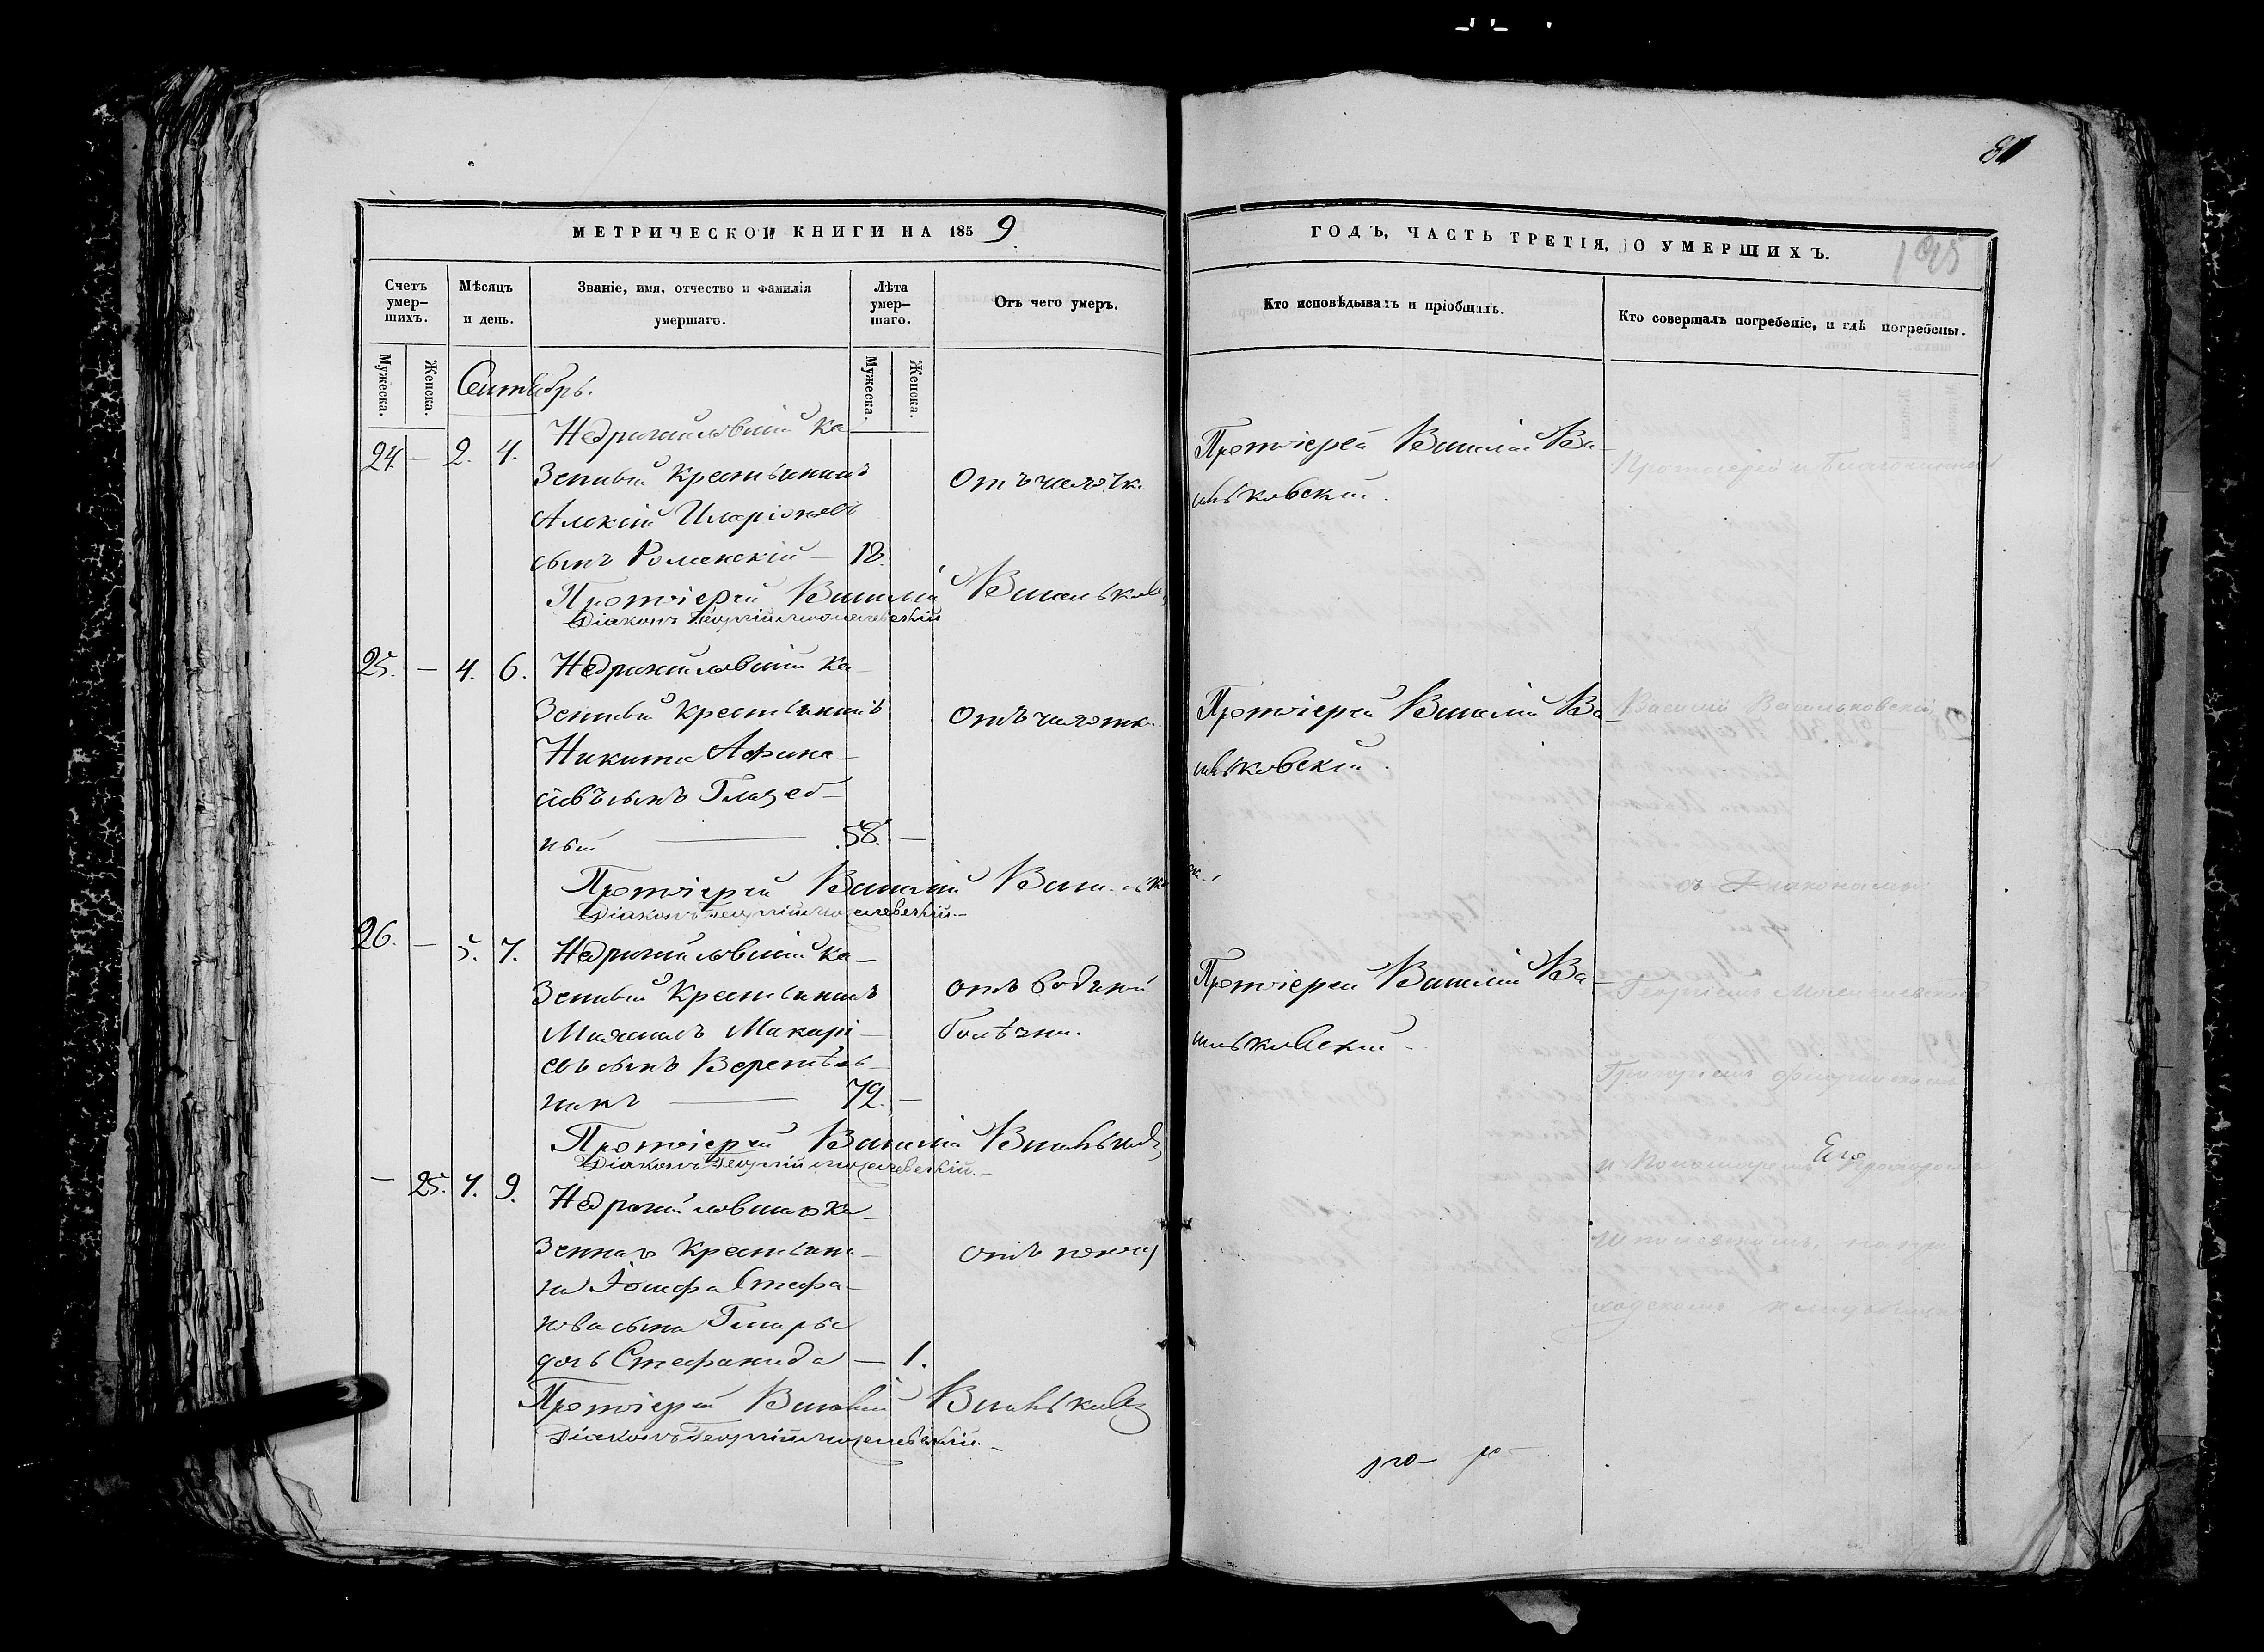 81
МЕТРИЧЕСКОЙ КНИГИ НА 1859
ГОДЪ, ЧАСТЬ ТРЕТІЯ, О УМЕРШИХЪ.
195
Счетъ умер-шихъ.
Мѣсяцъ и день.
Званіе, имя, отчество и фамилія умершаго.
Лѣта умер-шаго.
Отъ чего умеръ.
Кто исповѣдывалъ и пріобщалъ.
Кто совершалъ погребеніе, и гдѣ погребены.
Мужеска.
Женска.
Мужеска.
Женска.
Сентябрь.
24. — 2. 4.
Недригайловскій Ка
зенный Крестьянинъ
Алексій Иларіоновъ
сынъ Роменскій — 18.
Отъ чахотки
Протоіерей Василій Ва-
сильковскій.
Протоіерей и Благочинный
Протоіерей Василій Васильков
Діаконъ Георгій
25. — 4. 6.
Недригайловскій Ка-
зенный Крестьянинъ
Никита Афана-
сіевъ сынъ
ный — 58. —
Отъ чахотки
Протоіерей Василій Ва-
сильковскій.
Василій Васильковскій
Протоіерей Василій Василько
Діаконъ Георгій
съ Діакономъ
26. — 5. 7.
Недригайловскій Ка-
зенный Крестьянинъ
Михаилъ Макарі-
евъ сынъ Веретѣль-
никъ — 72. —
отъ водяной
болѣзни.
Протоіерей Василій Ва-
сильковскій.
Георгіемъ
Григоріемъ
Протоіерей Василій Васильков
Діаконъ Георгій
и Пономаремъ
Его
— 25. 7. 9.
Недригайловскаго Ка-
зеннаго Крестьяни-
на Іосифа Стефа-
нова сына
дочь Стефанида — 1.
отъ поносу
приходскомъ кладбищѣ
Протоіерей Василій Васильков
Діаконъ Георгій